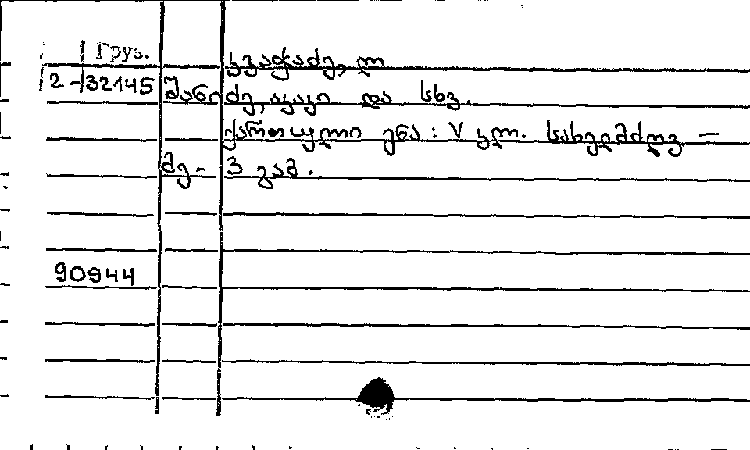 Груз.
კვაჭაძე, ლ
2-/32145 შანიძე, აკაკი და სხვ.
ქართული ენა: V კლ. სახელმძღვ —
მე- 3 გამ.
90944